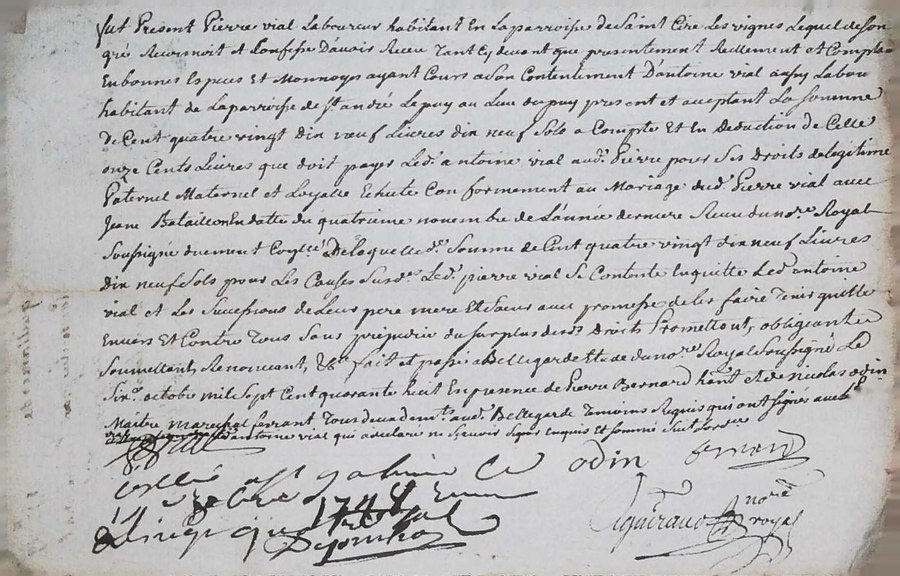 fut Present Pierre vial Laboureur habitant En La parroisse de Saint Cire les vignes Lequel de son
gré Reconnoit et Confesse Davoir Receu Tant Cy devant que presentement Reellement et Compta
En bonnes Especes et Monnoyes ayant Cours a Son Contentement D'antoine vial aussy Labou
habitant de La parroisse de St andré Le puy au Lieu du puy present et acceptant La Somme
de Cent quatre vingt dix neuf Livres dix neuf Sols a Compte Et En Deduction de Celle
onze Cents Livres que doit payer Led. antoine vial aud. Pierre pour Ses Droits de legitime
Paternel Maternel et Loyalle Echute Conformement au Mariage dud. Pierre vial avec
Jeane Bataillon En datte du quatrieme novembre de L'année derniere Receu du nore Royal
Soussigné duement Conllé De Laquelle de. Somme de Cent quatre vingt dix neuf Livres
dix neuf Sols pour Les Causes Susdes Led. pierre vial Se Contente En quitte Led. antoine
vial et Les Successions de Leurs pere mere Et Soeur avec promesse de les faire Tenir quitte
Envers Et Contre Tous Sans prejudice du Surplus desds Droits Promettant, obligeant &
Soumettant, Renoncant, &c. fait et passé a Bellegarde Etude du nore Royal Soussigné Le
Six octobre mil Sept Cent quarante huit En presence de Pierre Bernard hant Et de nicolas odin
Maitre marechal ferrant Tous deux demts aud. Bellegarde Temoins Requis qui ont Signés avec led
antoine vial qui a declaré ne Scavoir Signer Enquis et Sommé Suit Lordce
vial
odin bernard
Conllé a St galmier Le
14 8bre 1748 Reçu
vingt quatre sol
nore
royal